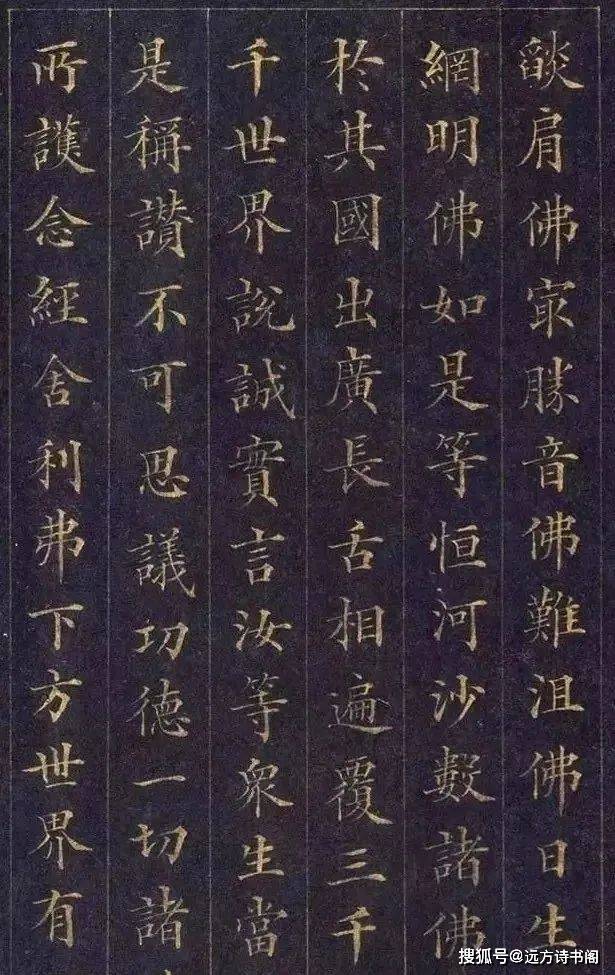 燄肩佛㝡勝音佛難沮佛日生
網明佛如是等恒河沙數諸佛
於其國出廣長舌相遍覆三千
千世界說誠實言汝等衆生當
是稱讚不可思議功德一切諸
所護念經舍利弗下方世界有
搜狐号@远方诗书阁